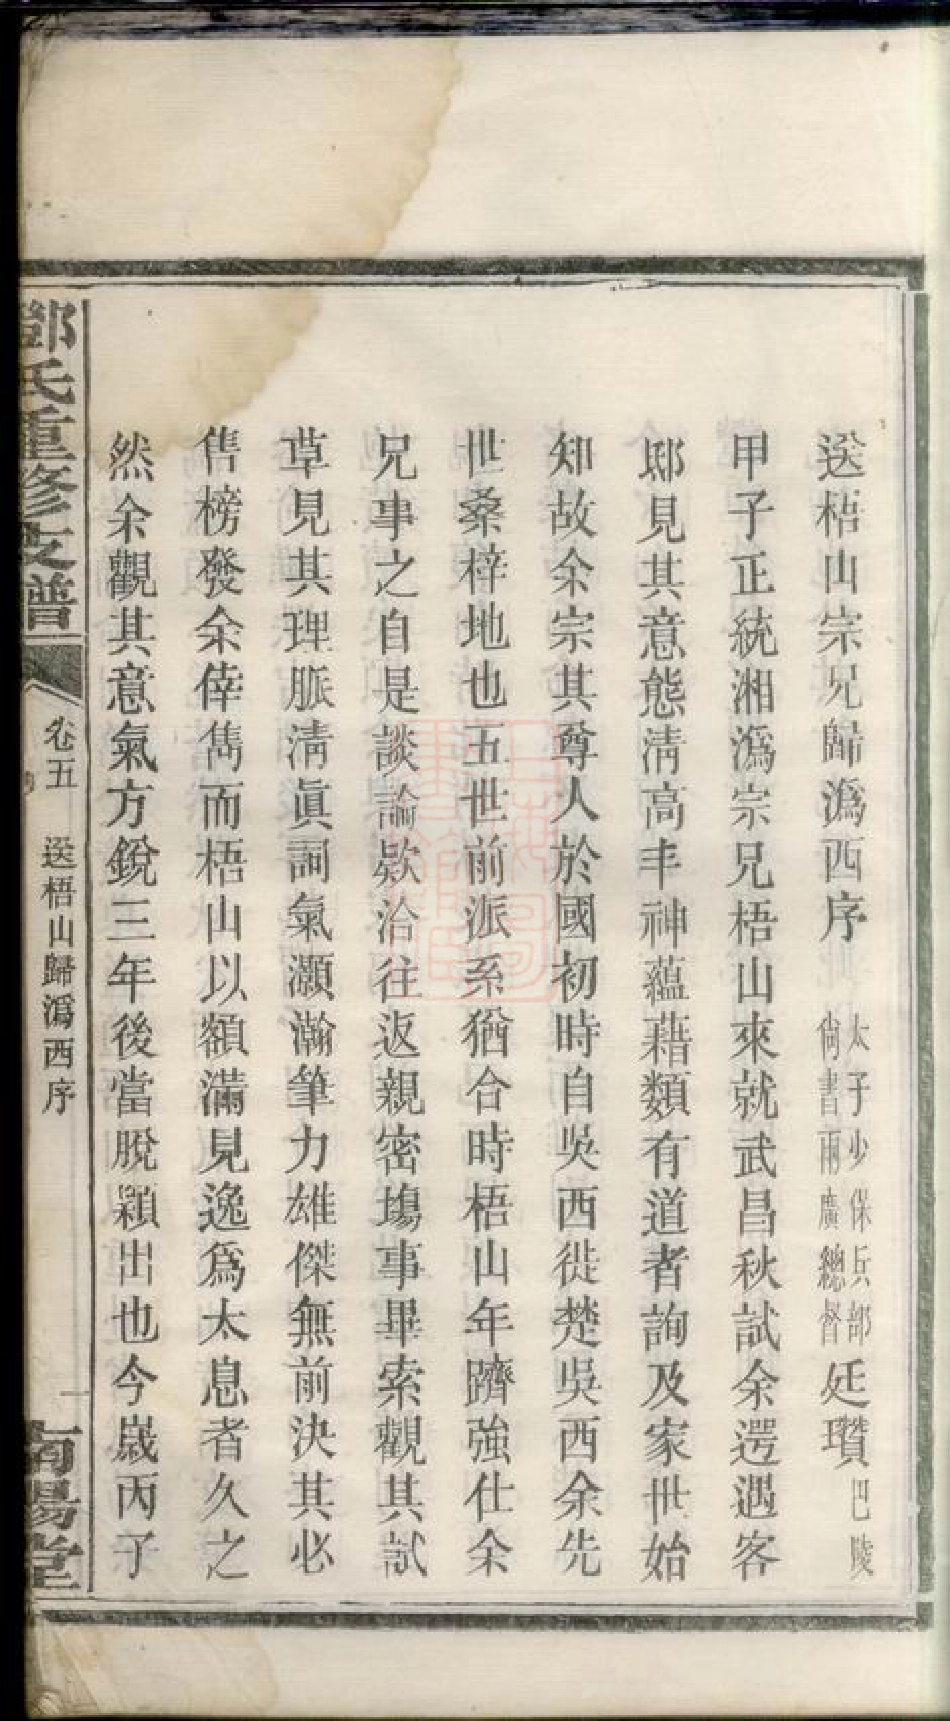 送梧山宗兄歸溈西序 太子少保兵部尚書兩廣總督廷瓚巴陵
甲子正統湘溈宗兄梧山來就武昌秋試余遌遇客
邸見其意態清高丰神蘊藉類有道者詢及家世始
知故余宗其尊人於國初時自吳西徙楚吳西余先
世桑梓地也五世前派系猶合時梧山年躋強仕余
兄事之自是談論欵洽往返親密塲事畢索觀其試
草見其理脈清眞詞氣灝瀚筆力雄傑無前決其必
售榜發余倖雋而梧山以額滿見逸爲太息者久之
然余觀其意氣方銳三年後當脫穎出也今歲丙子
鄧氏重修支譜
卷五
送梧山歸溈西序
一
南陽堂